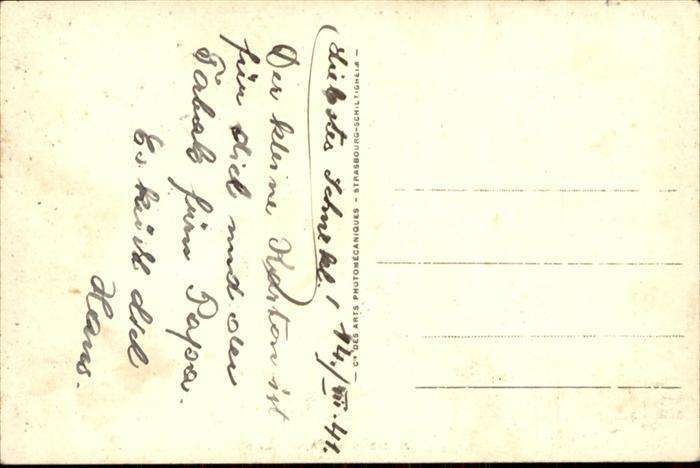 Liebster Schnekl! 14./VII.41.
Der kleine Karton ist
für dich und der
Tabak fürn Papa.
Es küßt dich
Hans.
— Cie DES ARTS PHOTOMÉCANIQUES - STRASBOURG-SCHILTIGHEIM —